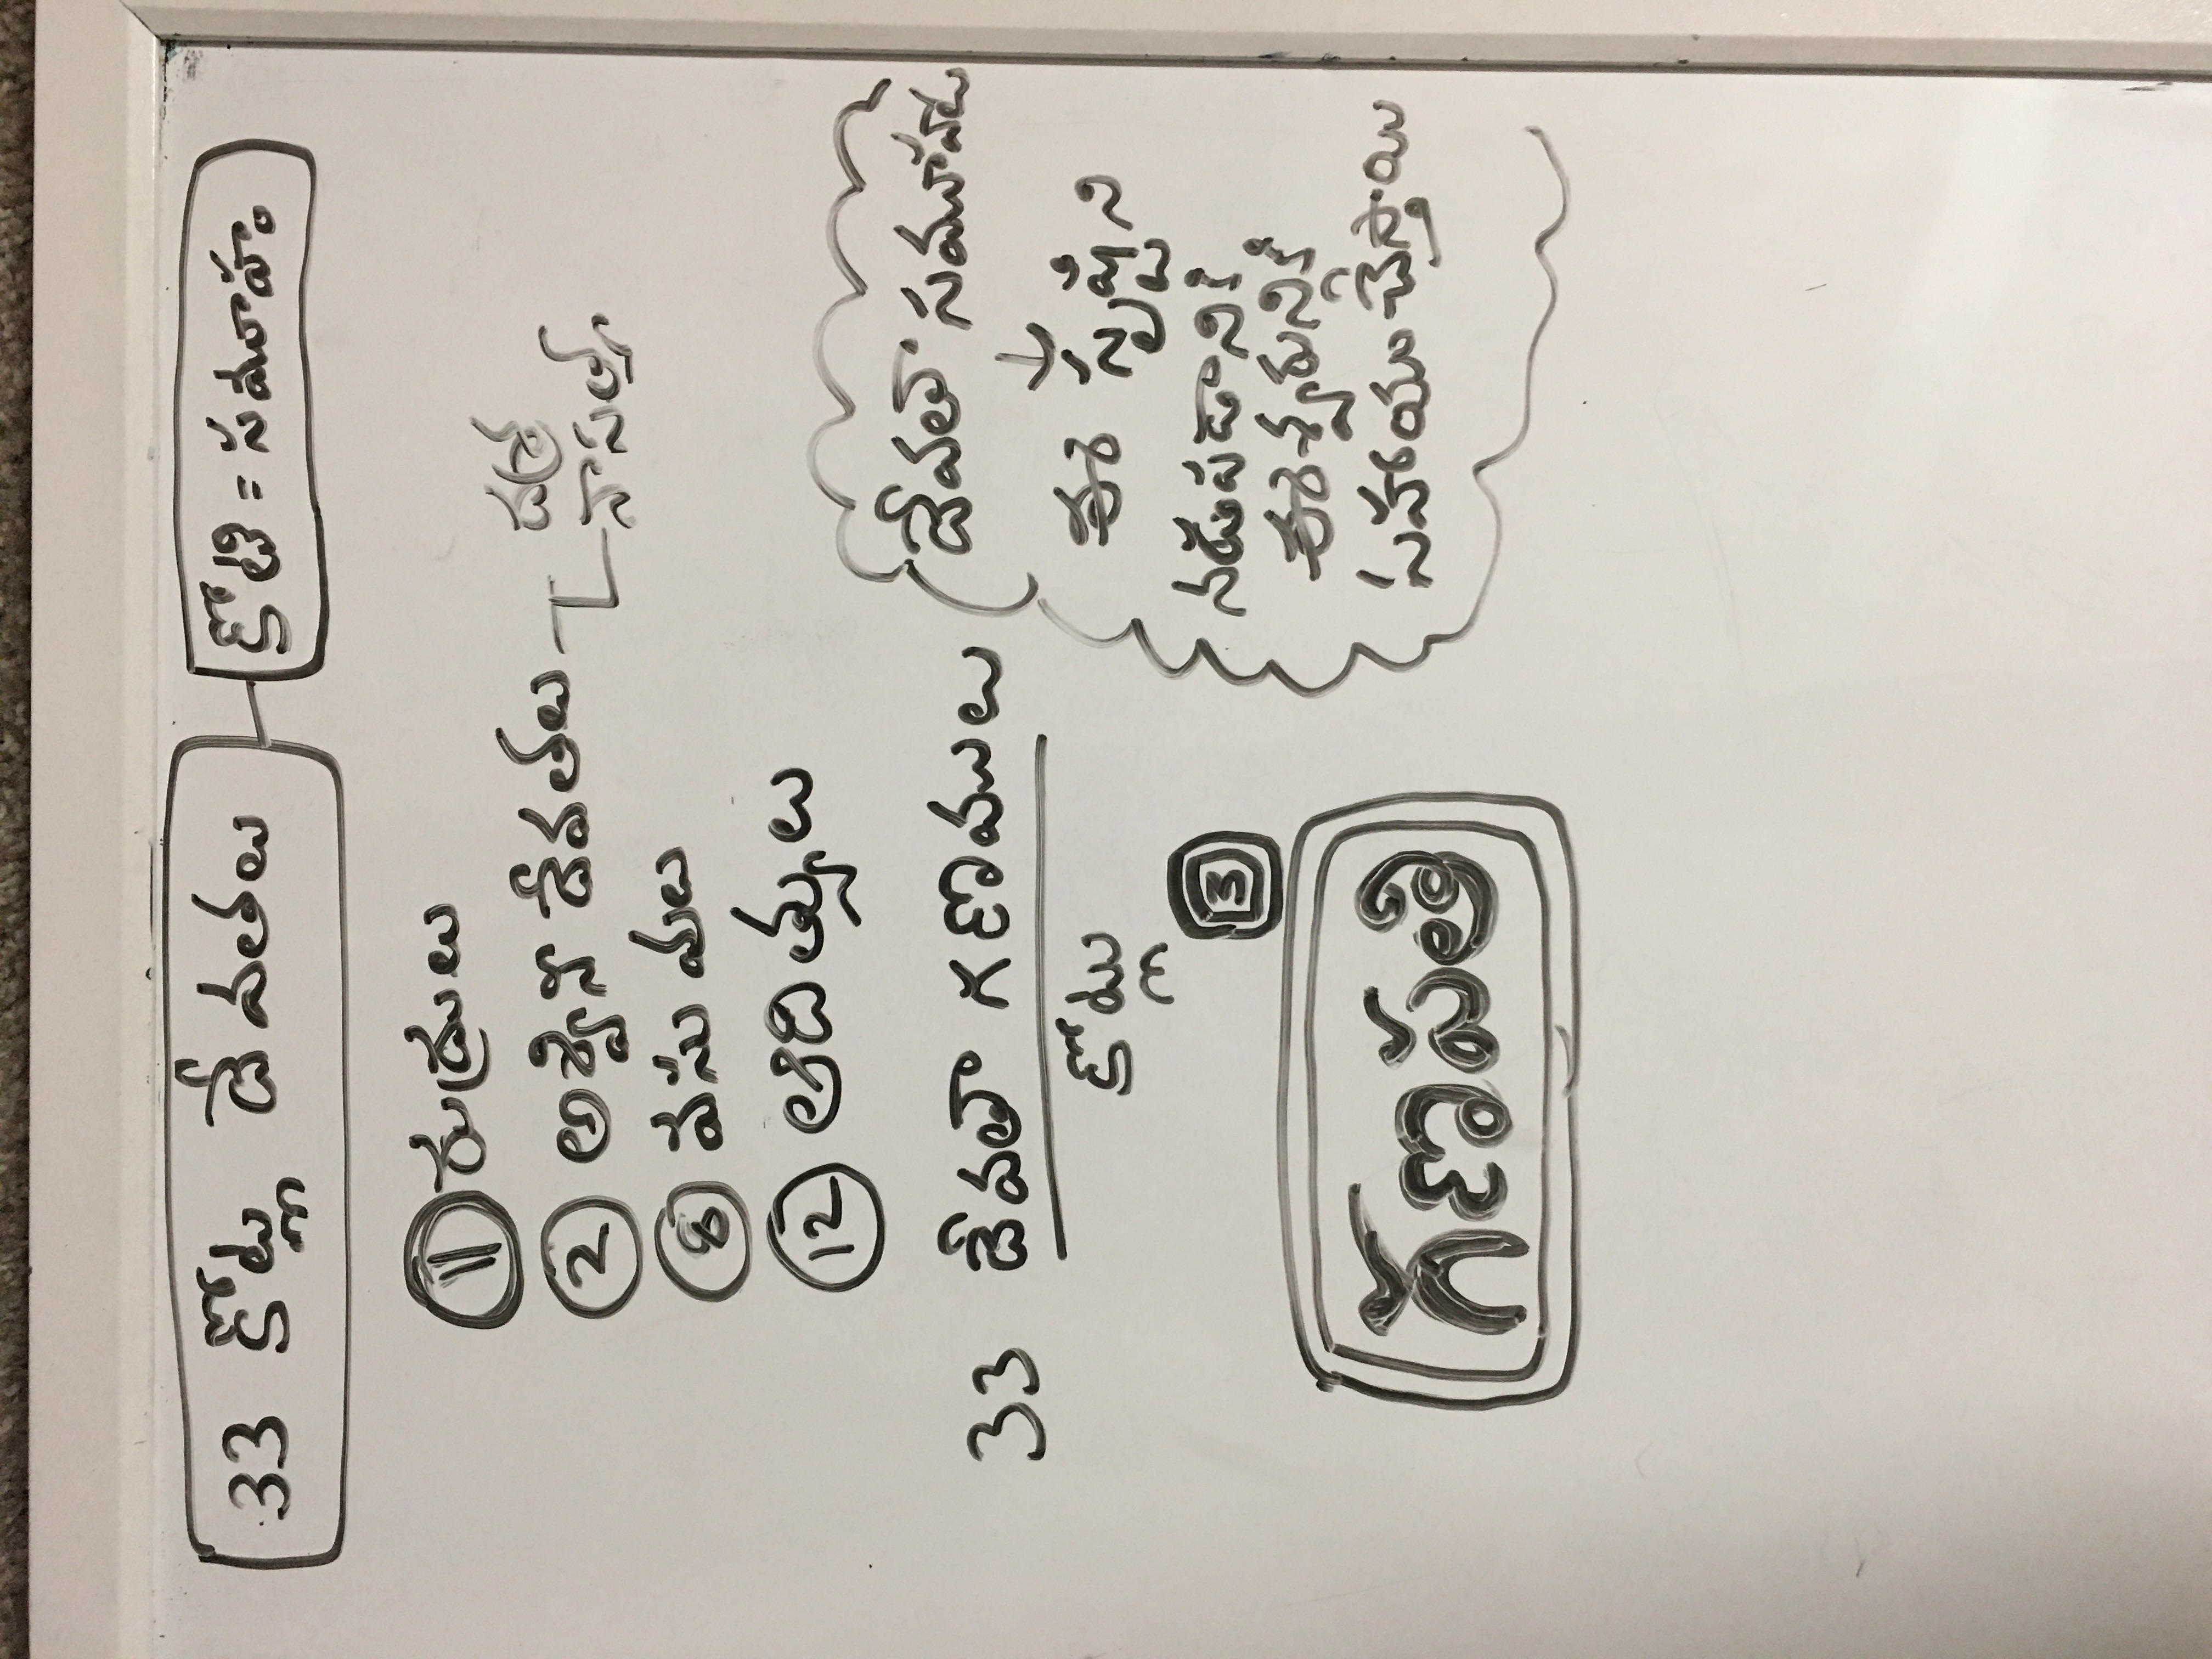 33 కోట్లు దేవతలు
కోటి = సమూహం
11 రుద్రులు
2 అశ్విని దేవతలు
నాసత్య
8 వసువులు
12 ఆదిత్యులు
33 దేవతా గణములు
కోట్లు
3
గణపతి
దేవతా
ఈ సృష్టిని
నడుపడానికి
ఈశ్వరునికి
సహాయం చేస్తాయి